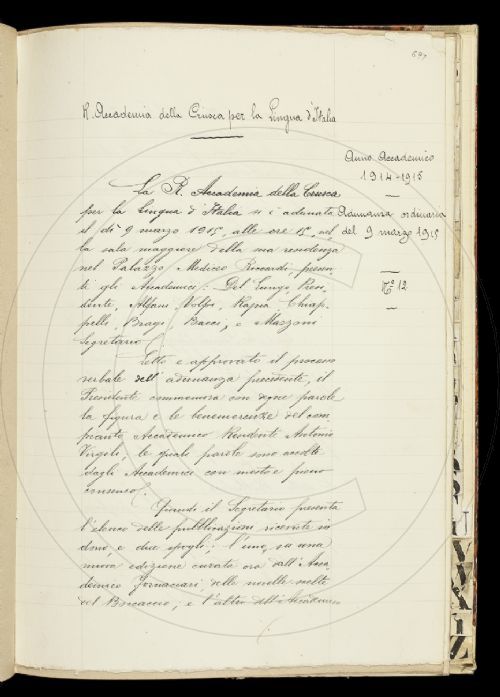 697
R. Accademia della Crusca per la Lingua d'Italia
Anno Accademico
1914-1915
Adunanza ordinaria
del 9 marzo 1915
N.º 12
La R. Accademia della Crusca
per la Lingua d'Italia si è adunata
il dì 9 marzo 1915, alle ore 15, nel
la sala maggiore della sua residenza
nel Palazzo Mediceo Riccardi, presen
ti gli Accademici: Del Lungo, Presi
dente, Alfani, Volpi, Rajna, Chiap
pelli, Biagi, Bacci, e Mazzoni
Segretario.
Letto e approvato il processo
verbale dell'adunanza precedente, il
Presidente commemora con degne parole
la figura e le benemerenze del com
pianto Accademico Residente Antonio
Virgili; le quali parole sono accolte
dagli Accademici con mesto e pieno
consenso.
Quindi il Segretario presenta
l'elenco delle pubblicazioni ricevute in
dono e due spogli; l'uno, su una
nuova edizione curata ora dall'Acca
demico Fornaciari, delle novelle scelte
del Boccaccio; e l'altro dell'Accademico